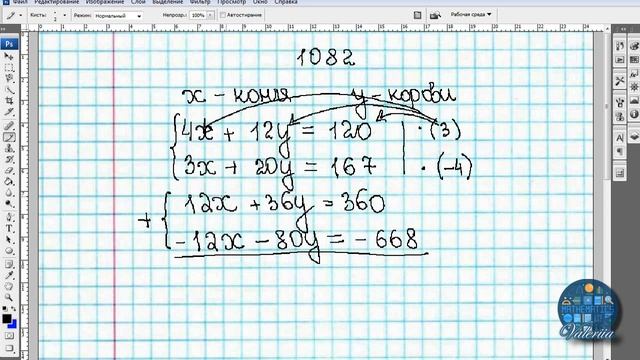 Файл Редактирование Изображение Слой Выделение Фильтр Просмотр Окно Справка
Кисть: Режим: Нормальный Непрозр.: 100% Автостирание Рабочая среда
1082
x - коня y - корови
4x + 12y = 120 | · (3)
3x + 20y = 167 | · (-4)
+ 12x + 36y = 360
-12x - 80y = -668
MATHEMATICS
Valeriia